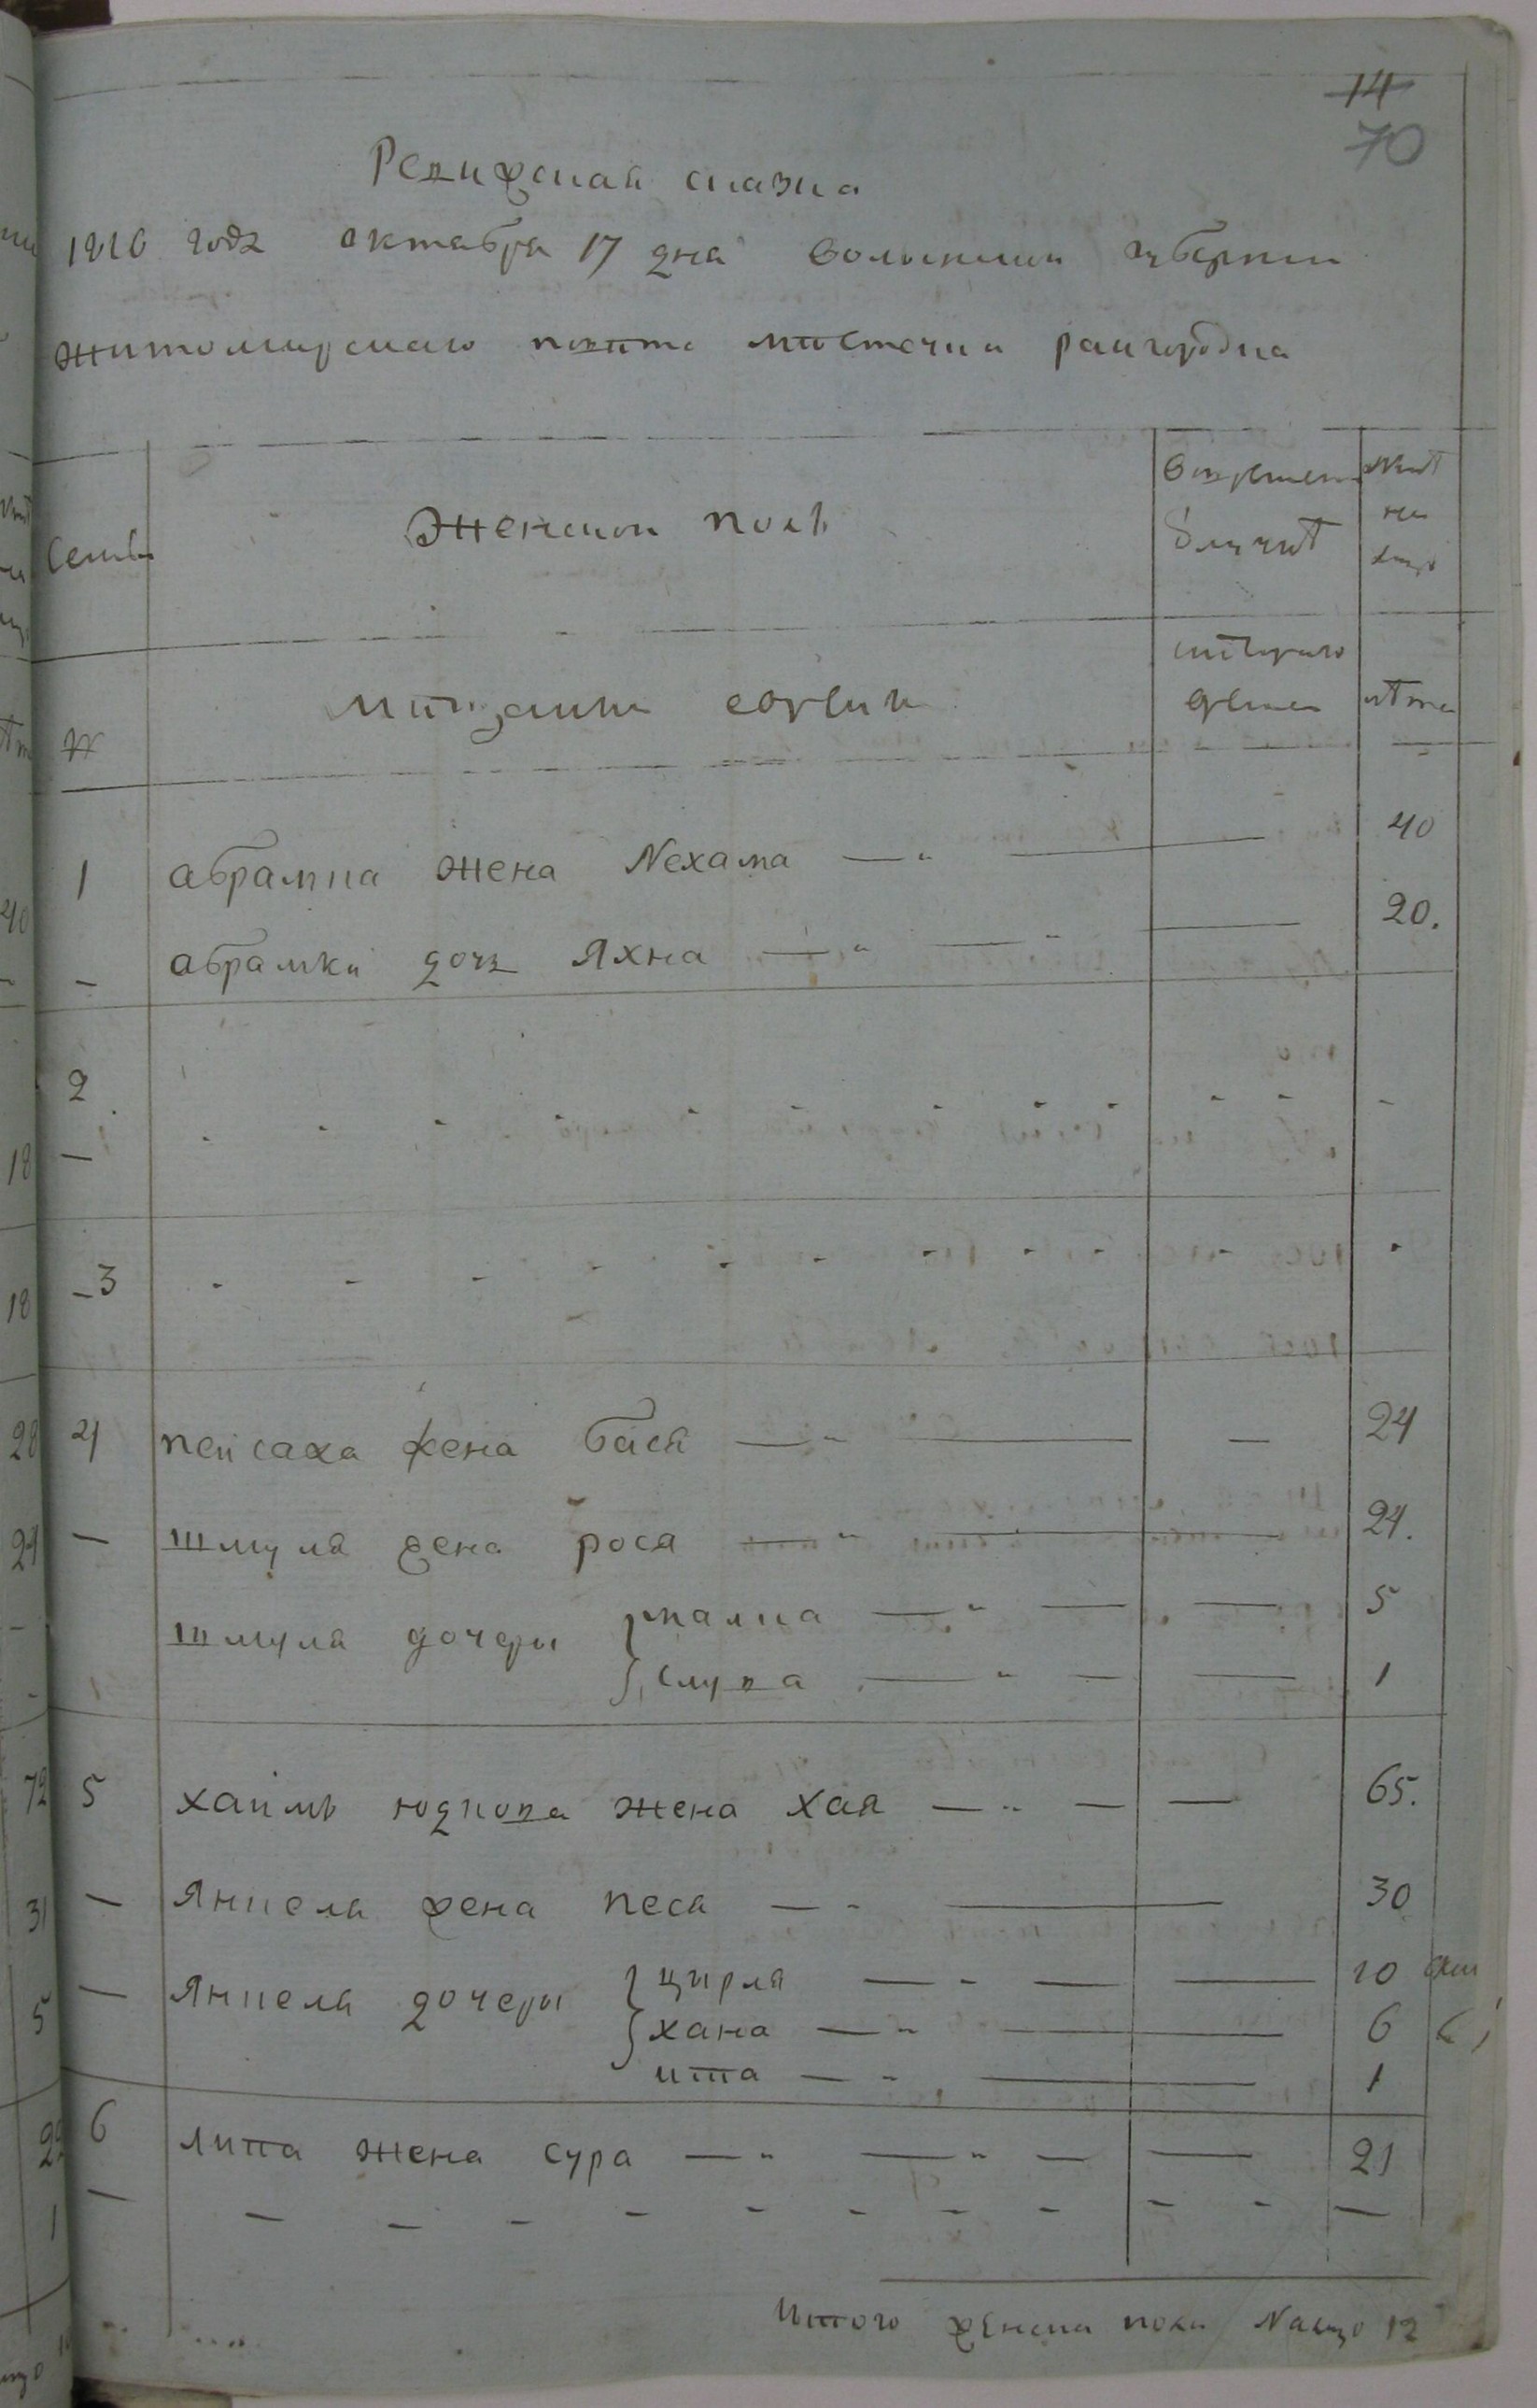 14
70
Ревижская сказка
1816 годъ октабра 17 дна волынской губернии
житомирскаго повѣта мѣстечки раигородка
Семьи
Женскои полъ
житъ
на
лицо
мѣщанъ евреи
№
лѣта
1 абрамка жена Nехама —„ — 40
– абрамки дочь Яхна —„ —„ — 20.
2 - - - - - - - - - - - -
—
– 3 - - - - - - - - - - -
4 пейсаха жена бася —„ — — 24
— шмуля жена рося —„ — 24.
шмуля дочери { малка —„ — — 5
слува —„ — — 1
5 хаимъ юдкова жена хая —„ — — 65.
— Янкеля жена песя —„ — 30
— Янкеля дочери { цирля —„ — — 10
хана —„ — 6
ита —„ — 1
6 липа жена сура —„ —„ — — 21
— — — — — — — — — — — —
Итого женска пола Nалицо 12